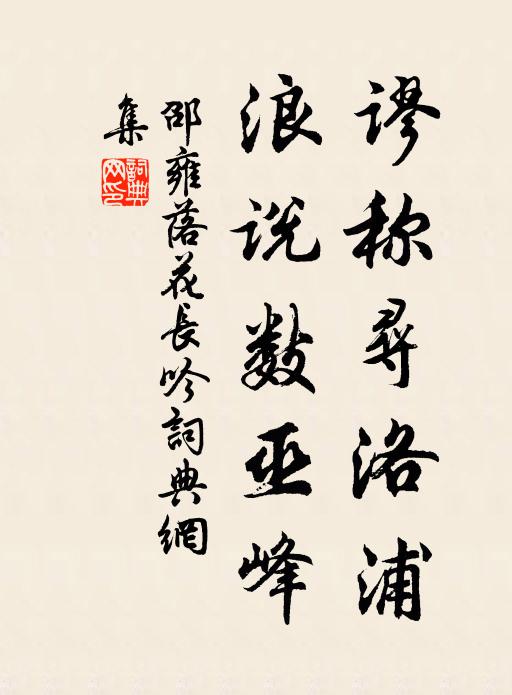 谬称寻洛浦
浪说数巫峰
邵雍落花長吟詞典網
集
詞典網印